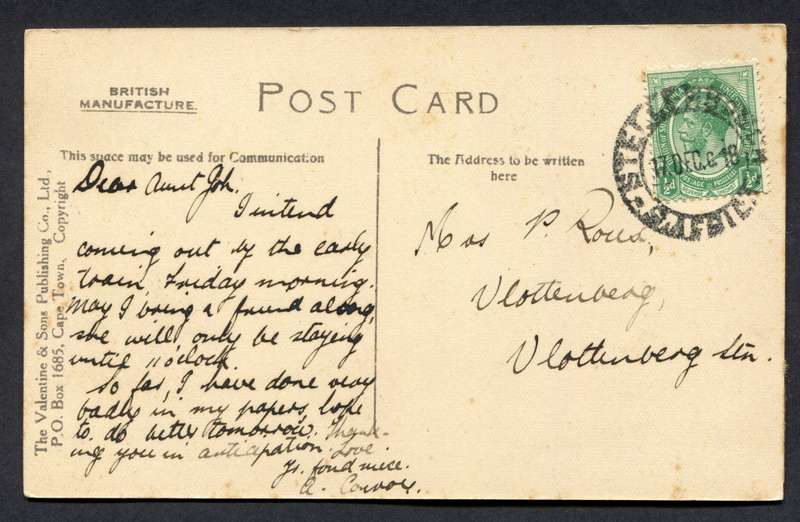 BRITISH
MANUFACTURE.
POST CARD
This space may be used for Communication
The Address to be written
here
The Valentine & Sons Publishing Co., Ltd.,
P.O. Box 1685, Cape Town, Copyright
Dear Aunt Joh.
I intend
coming out by the early
train, Friday morning.
May I bring a friend along,
she will only be staying
until 11 o'clock.
So far, I have done very
badly in my papers, hope
to do better tomorrow. Thank-
ing you in anticipation. Love
Yr. fond niece.
A.
Mrs P. Roux,
Vlottenberg,
Vlottenberg Stn.
17 DEC